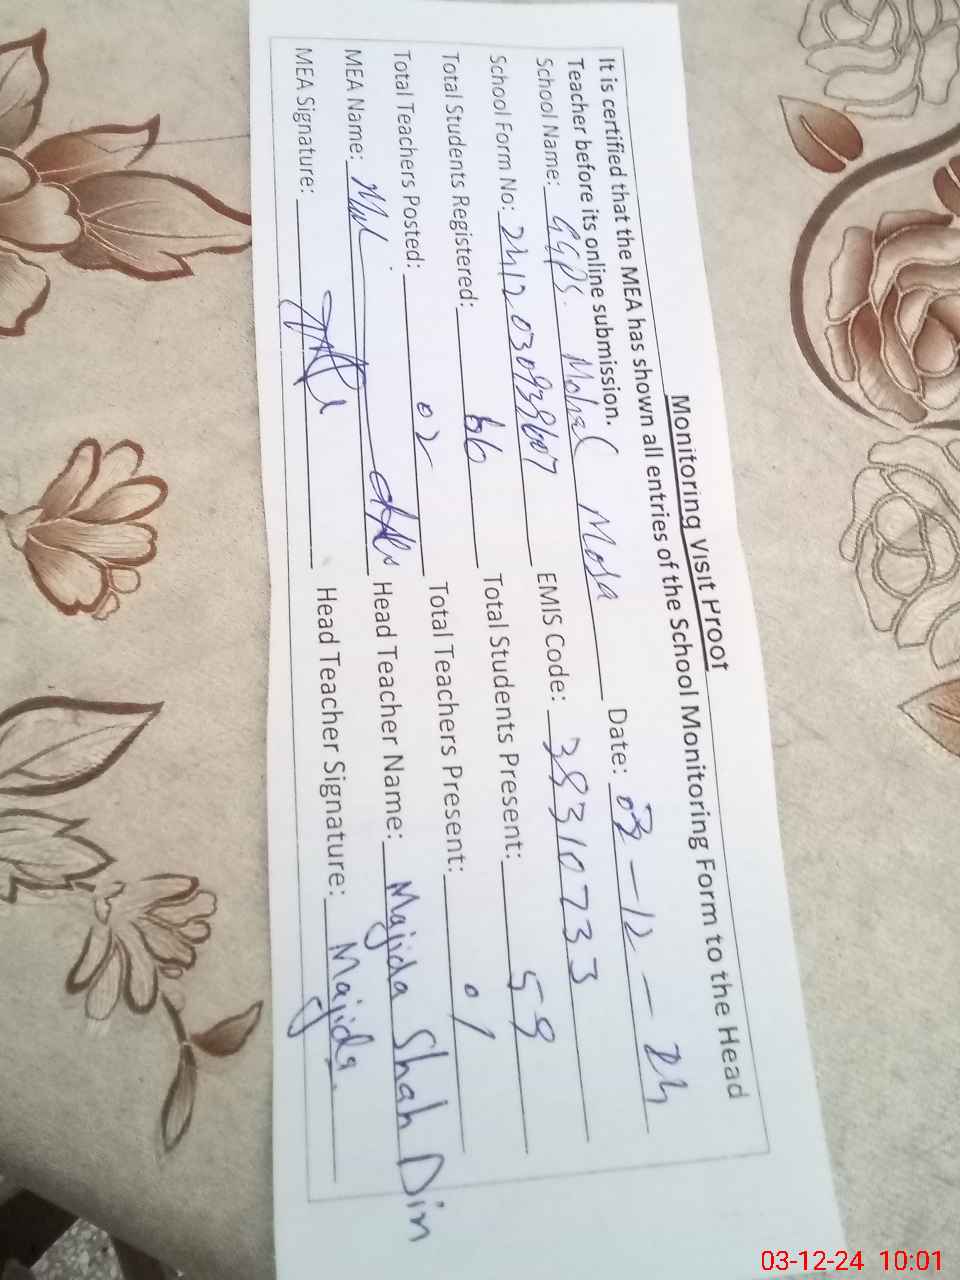 Monitoring Visit Proof
It is certified that the MEA has shown all entries of the School Monitoring Form to the Head
Teacher before its online submission.
Date: 03-12-24
School Name: GGPS. Mohal
School Form No: EMIS Code: 38310733
Total Students Registered: 66 Total Students Present: 59
Total Teachers Posted: 02 Total Teachers Present: 01
MEA Name: Head Teacher Name: Majida Shah Din
MEA Signature: Head Teacher Signature: Majida.
03-12-24 10:01